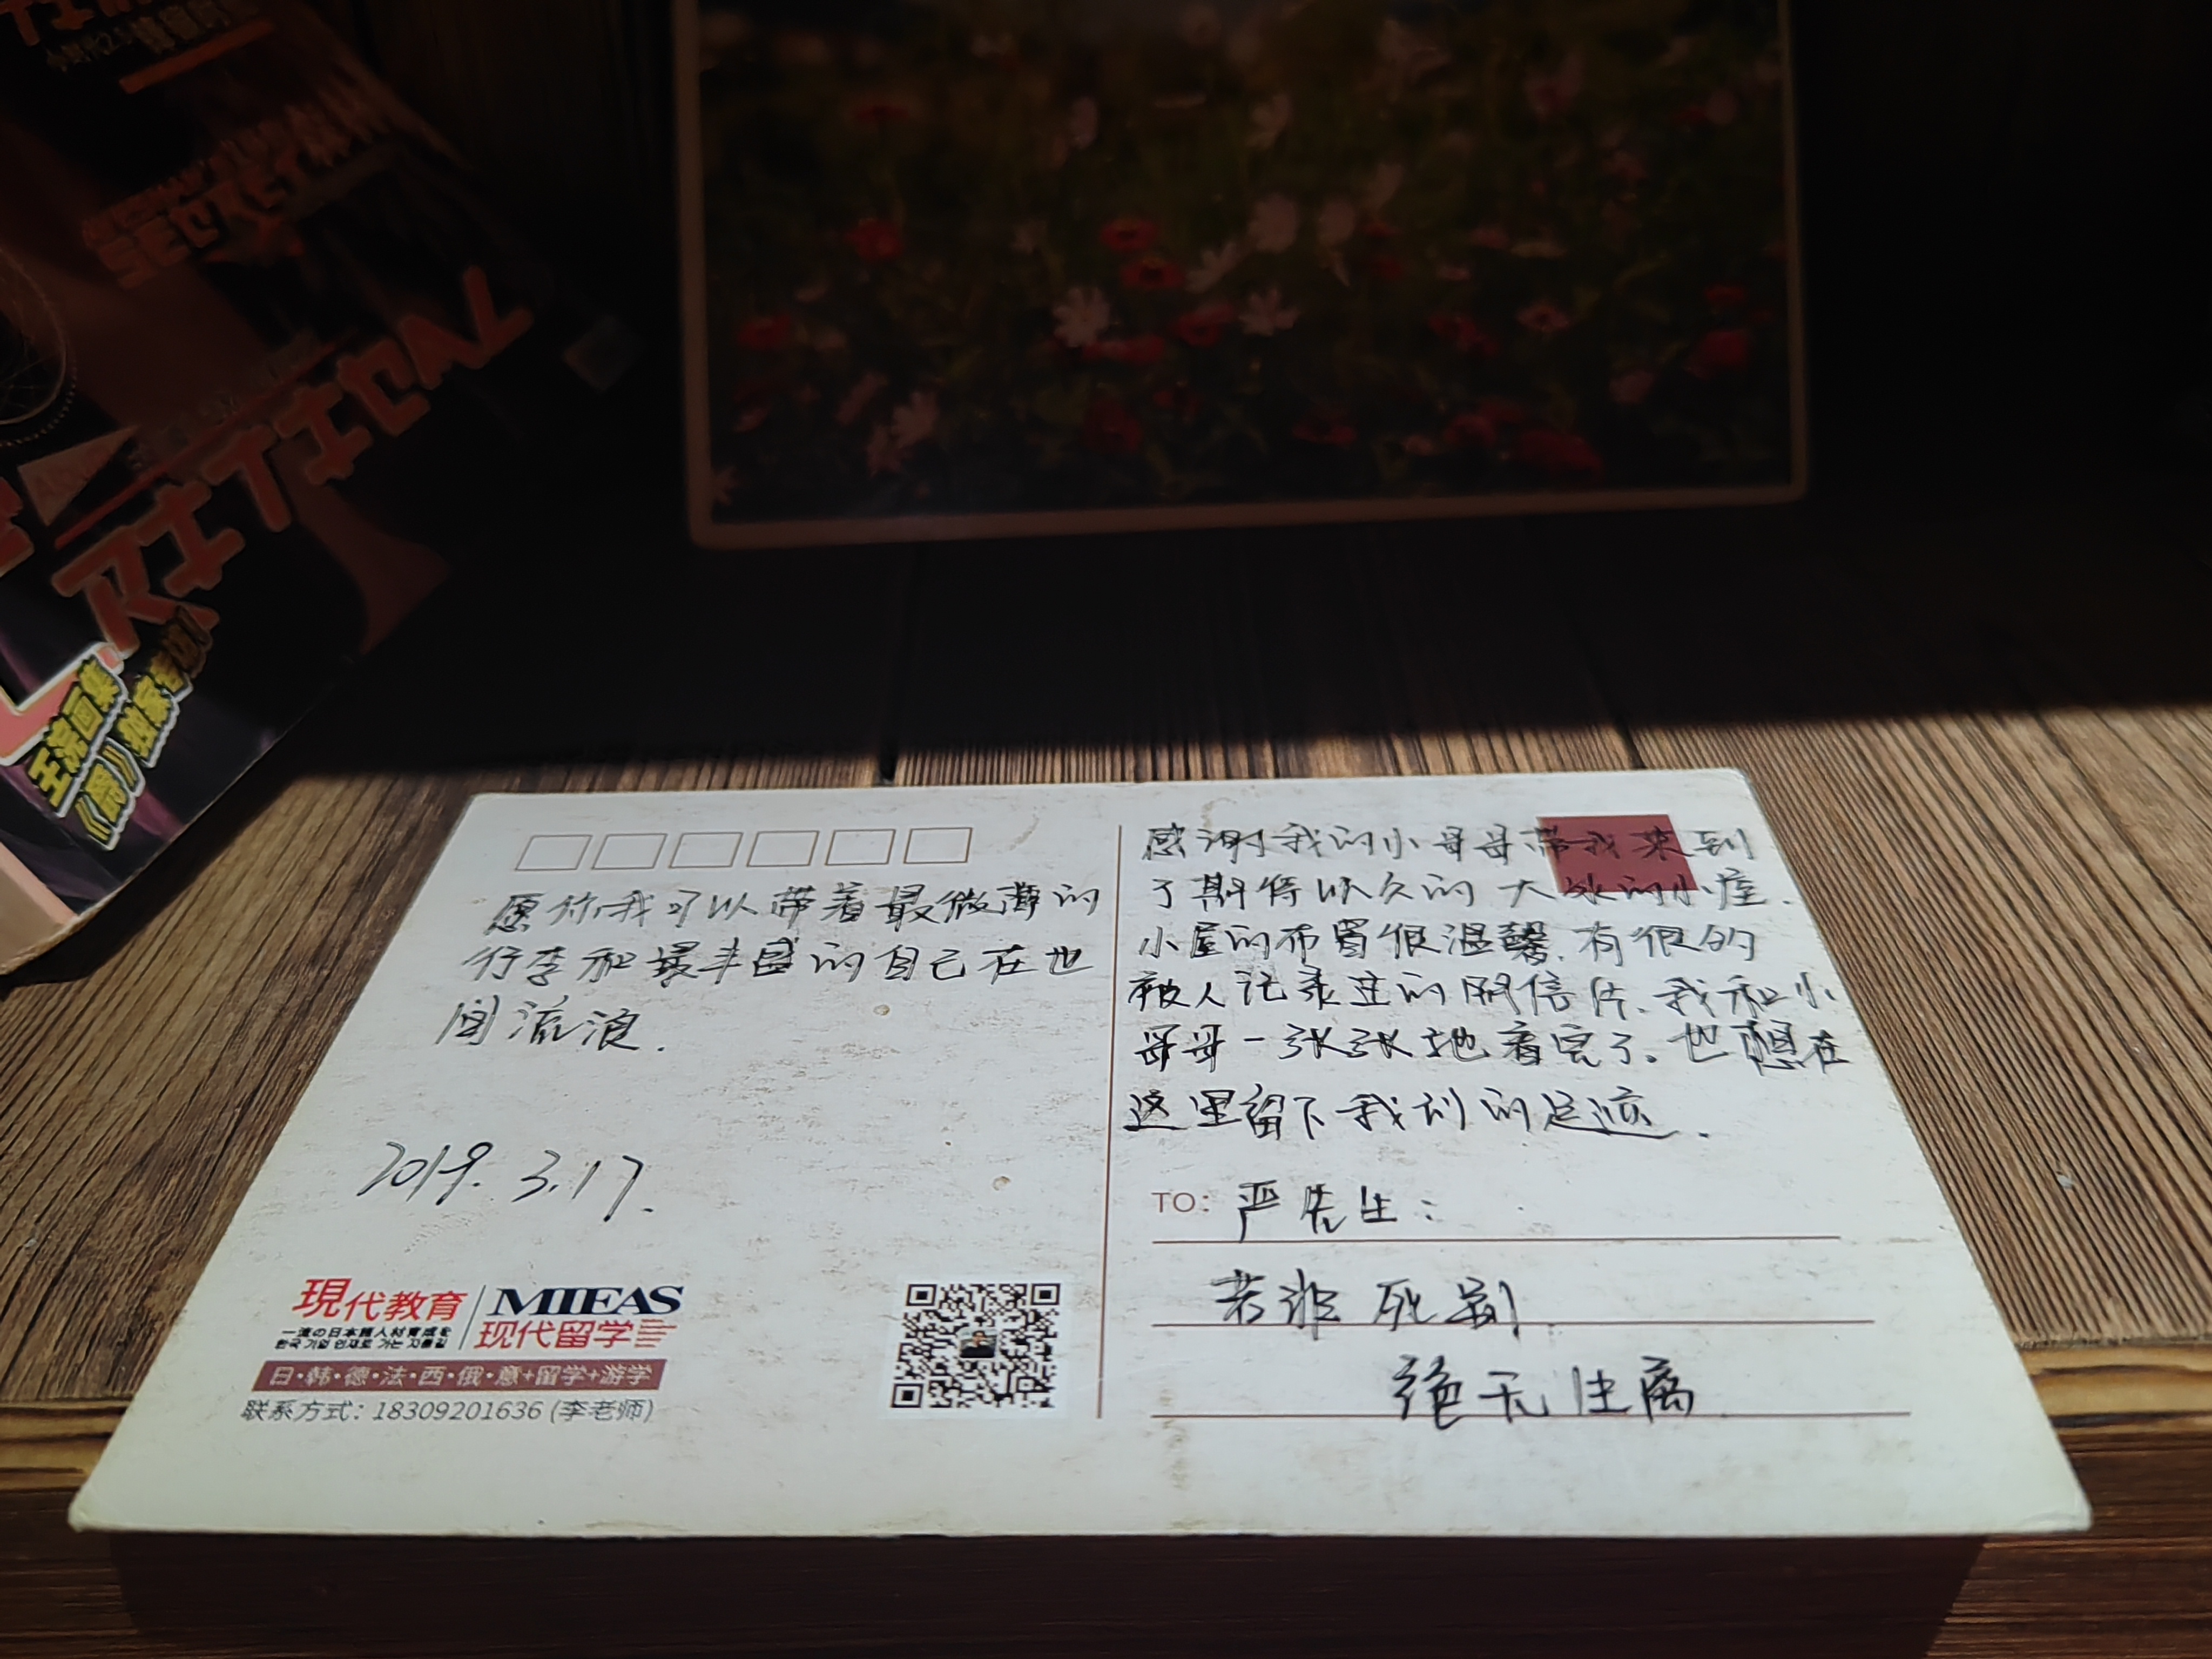 愿你我可以带着最微薄的
行李和最丰盛的自己在世
间流浪.
2019.3.17.
現代教育
一流の日本語人材育成を
한국 기업 인재로 가는 지름길
MIIFAS
现代留学
日·韩·德·法·西·俄·意+留学+游学
联系方式：18309201636 (李老师)
感谢我的小哥哥带我来到
了期待以久的大冰的小屋.
小屋的布置很温馨.有很多的
被人记录过的明信片.我和小
哥哥一张张地看完了。也想在
这里留下我们的足迹.
TO: 严先生：
若非死别
绝无生离.
王滚回巢